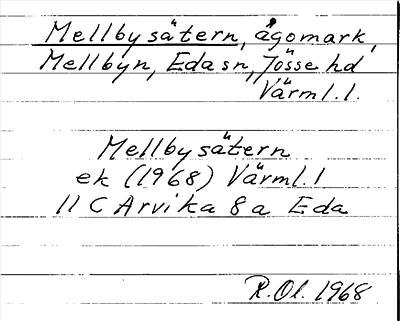 Mellbysätern, ägomark,
Mellbyn, Eda sn, Jösse hd
Värml. l.
Mellbysätern
ek (1968) Värml. l
11 C Arvika 8 a Eda
R. Ol. 1968